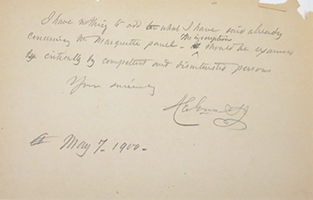 I have nothing to add to what I have said already
concerning the Marquette panel - the inscription should be examined
critically by competent and disinterested persons
Yours sincerely
May 7. 1900.